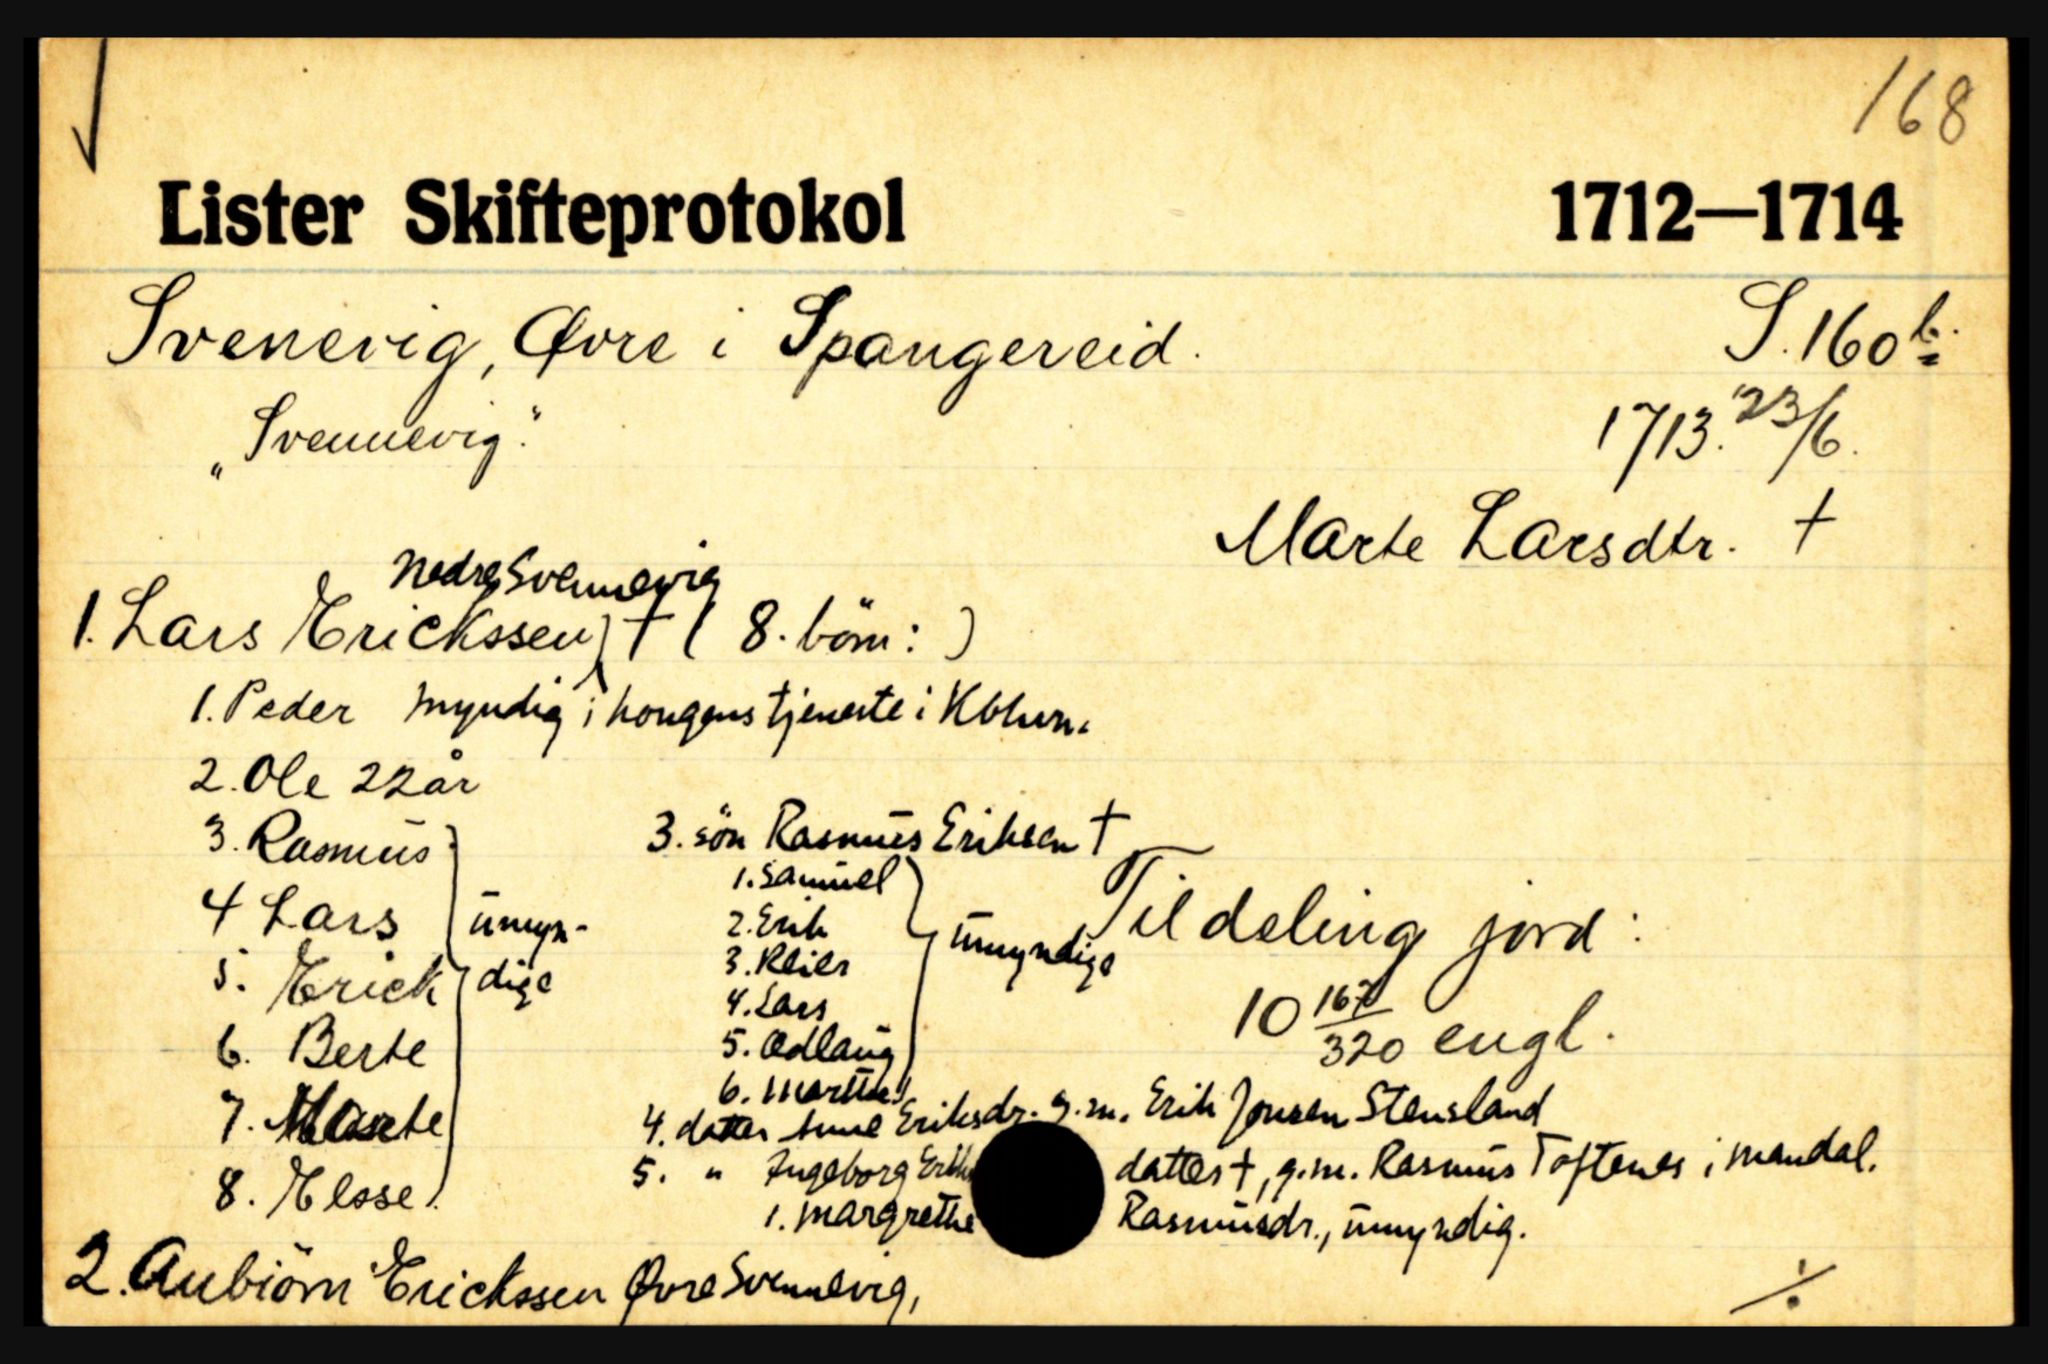 168
Lister Skifteprotokol 1712—1714
Svenevig, Øvre i Spangereid. S. 160 b.
„Svennevig." 1713. 23/6.
Marte Larsdtr. †
Nedre Svennevig
1. Lars Erickssen † ( 8. börn: )
1. Peder myndig i kongens tjeneste i Kbhvn.
2. Ole 22 år
3. Rasmus
4 Lars
5. Erick
6. Berte
7. Marte
8. Elsse.
umyn-
dige
3. sön Rasmus Eriksen †
1. Samuel
2. Erik
3. Reier
4. Lars
5. Odlaug
6. Marthe
umyndige
Til deling jord:
10 167/320 engl.
4. datter Anne Eriksdr. g.m. Erik Jonsen Stensland
5. " Ingeborg Eriks datter †, g.m. Rasmus Toftenes i Mandal.
1. Margrethe Rasmusdr., umyndig.
2. Aubiörn Erickssen Øvre Svennevig,
÷